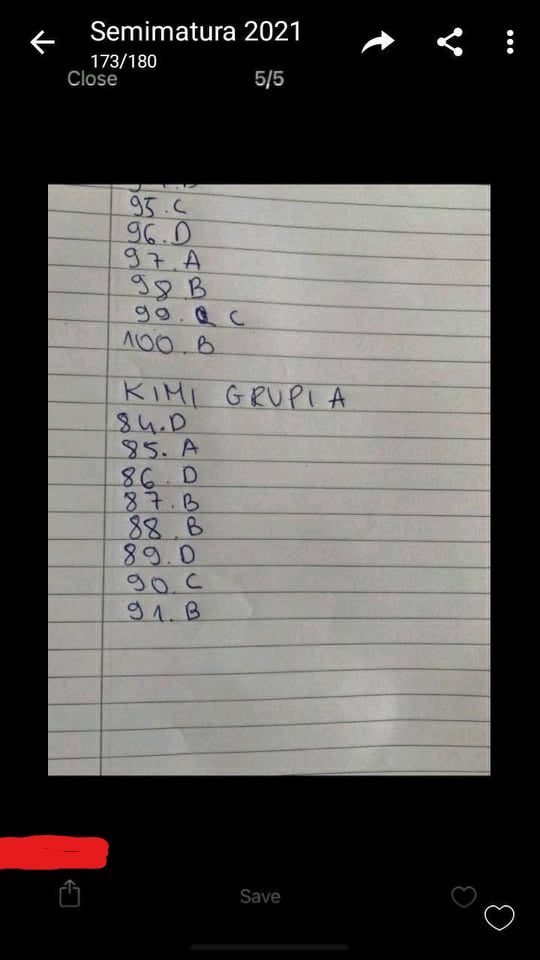 Semimatura 2021
173/180
Close 5/5
95.C
96.D
97.A
98.B
99. C
100.B
KIMI GRUPI A
84.D
85.A
86.D
87.B
88.B
89.D
90.C
91.B
Save